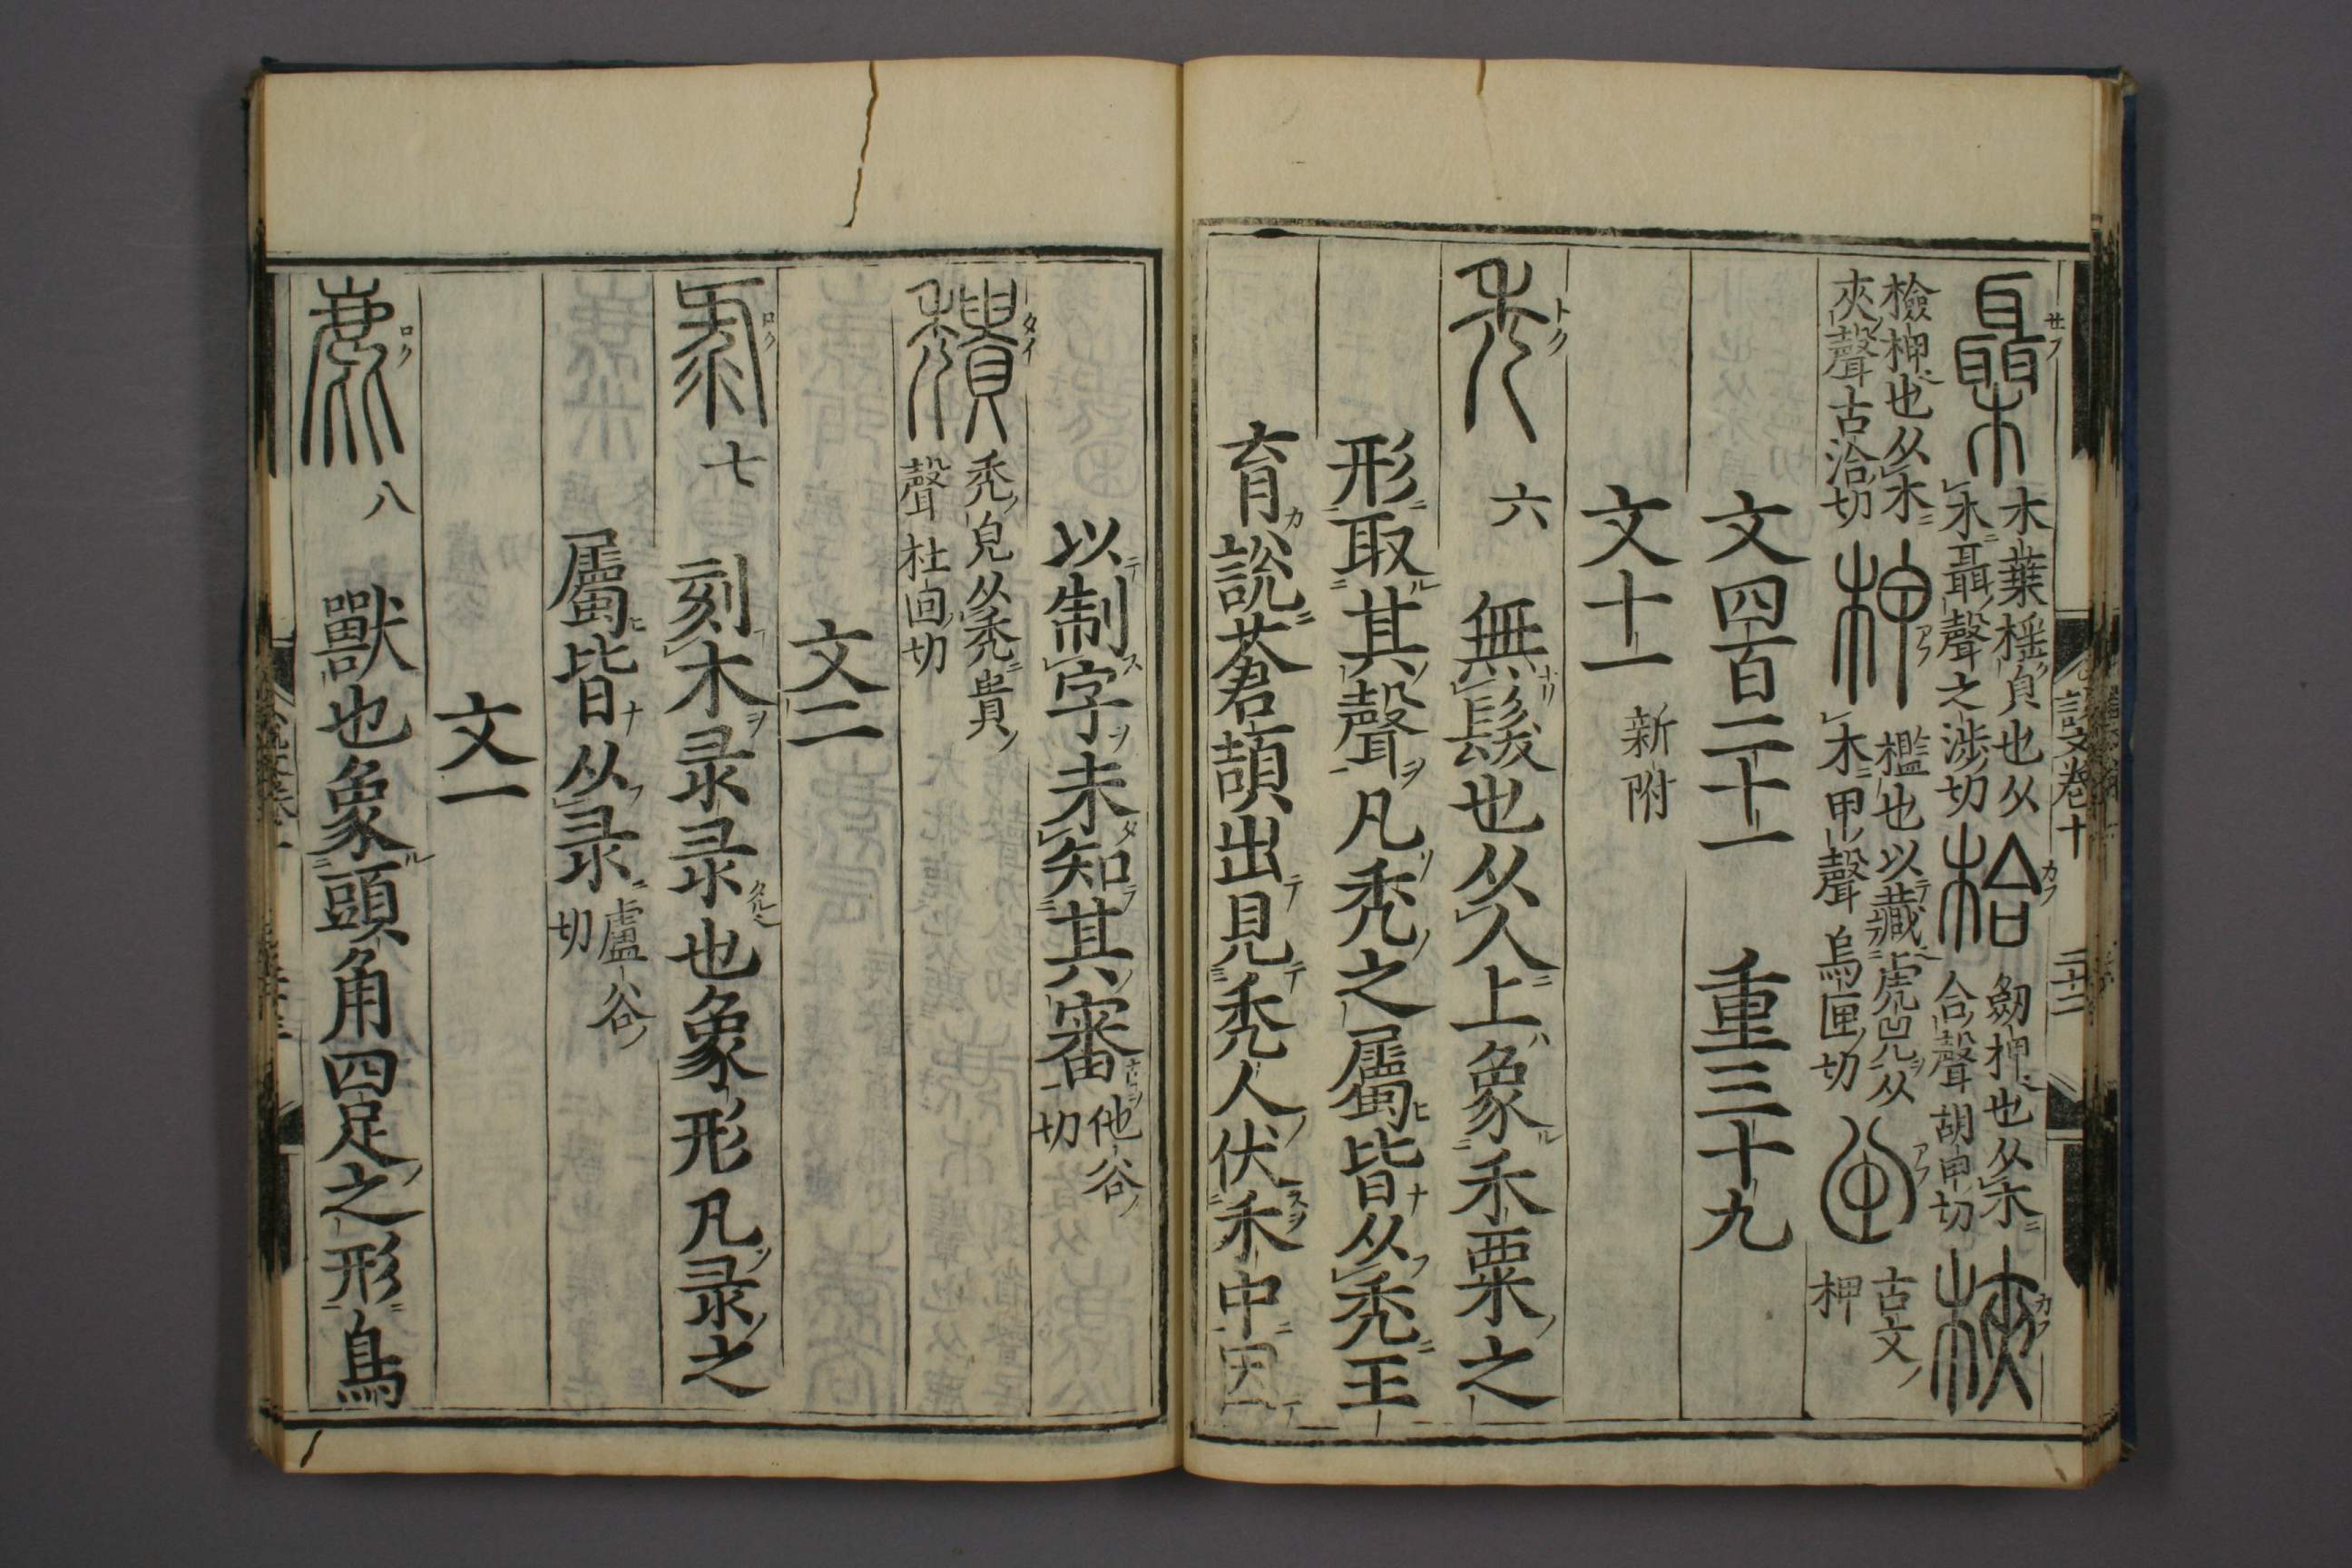 説文卷十 二十二
欇 木葉榣皃也从木聶聲之涉切 枱 劔柙也从木合聲胡甲切 梜
檢柙也从木夾聲古洽切 柙 檻也以藏虎兕从木甲聲烏匣切 古文柙
文四百二十一 重三十九
文十一 新附
禿 六 無髮也从人上象禾粟之
形取其聲凡禿之屬皆从禿王
育說蒼頡出見禿人伏禾中因
以制字未知其審 他谷切
穨 禿皃从禿貴聲杜回切
文二
彔 七 刻木彔彔也象形凡彔之
屬皆从彔 盧谷切
文一
鹿 八 獸也象頭角四足之形鳥